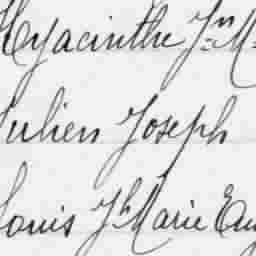 Hyacinthe Jn M
Julien Joseph
Louis Jh Marie Eug